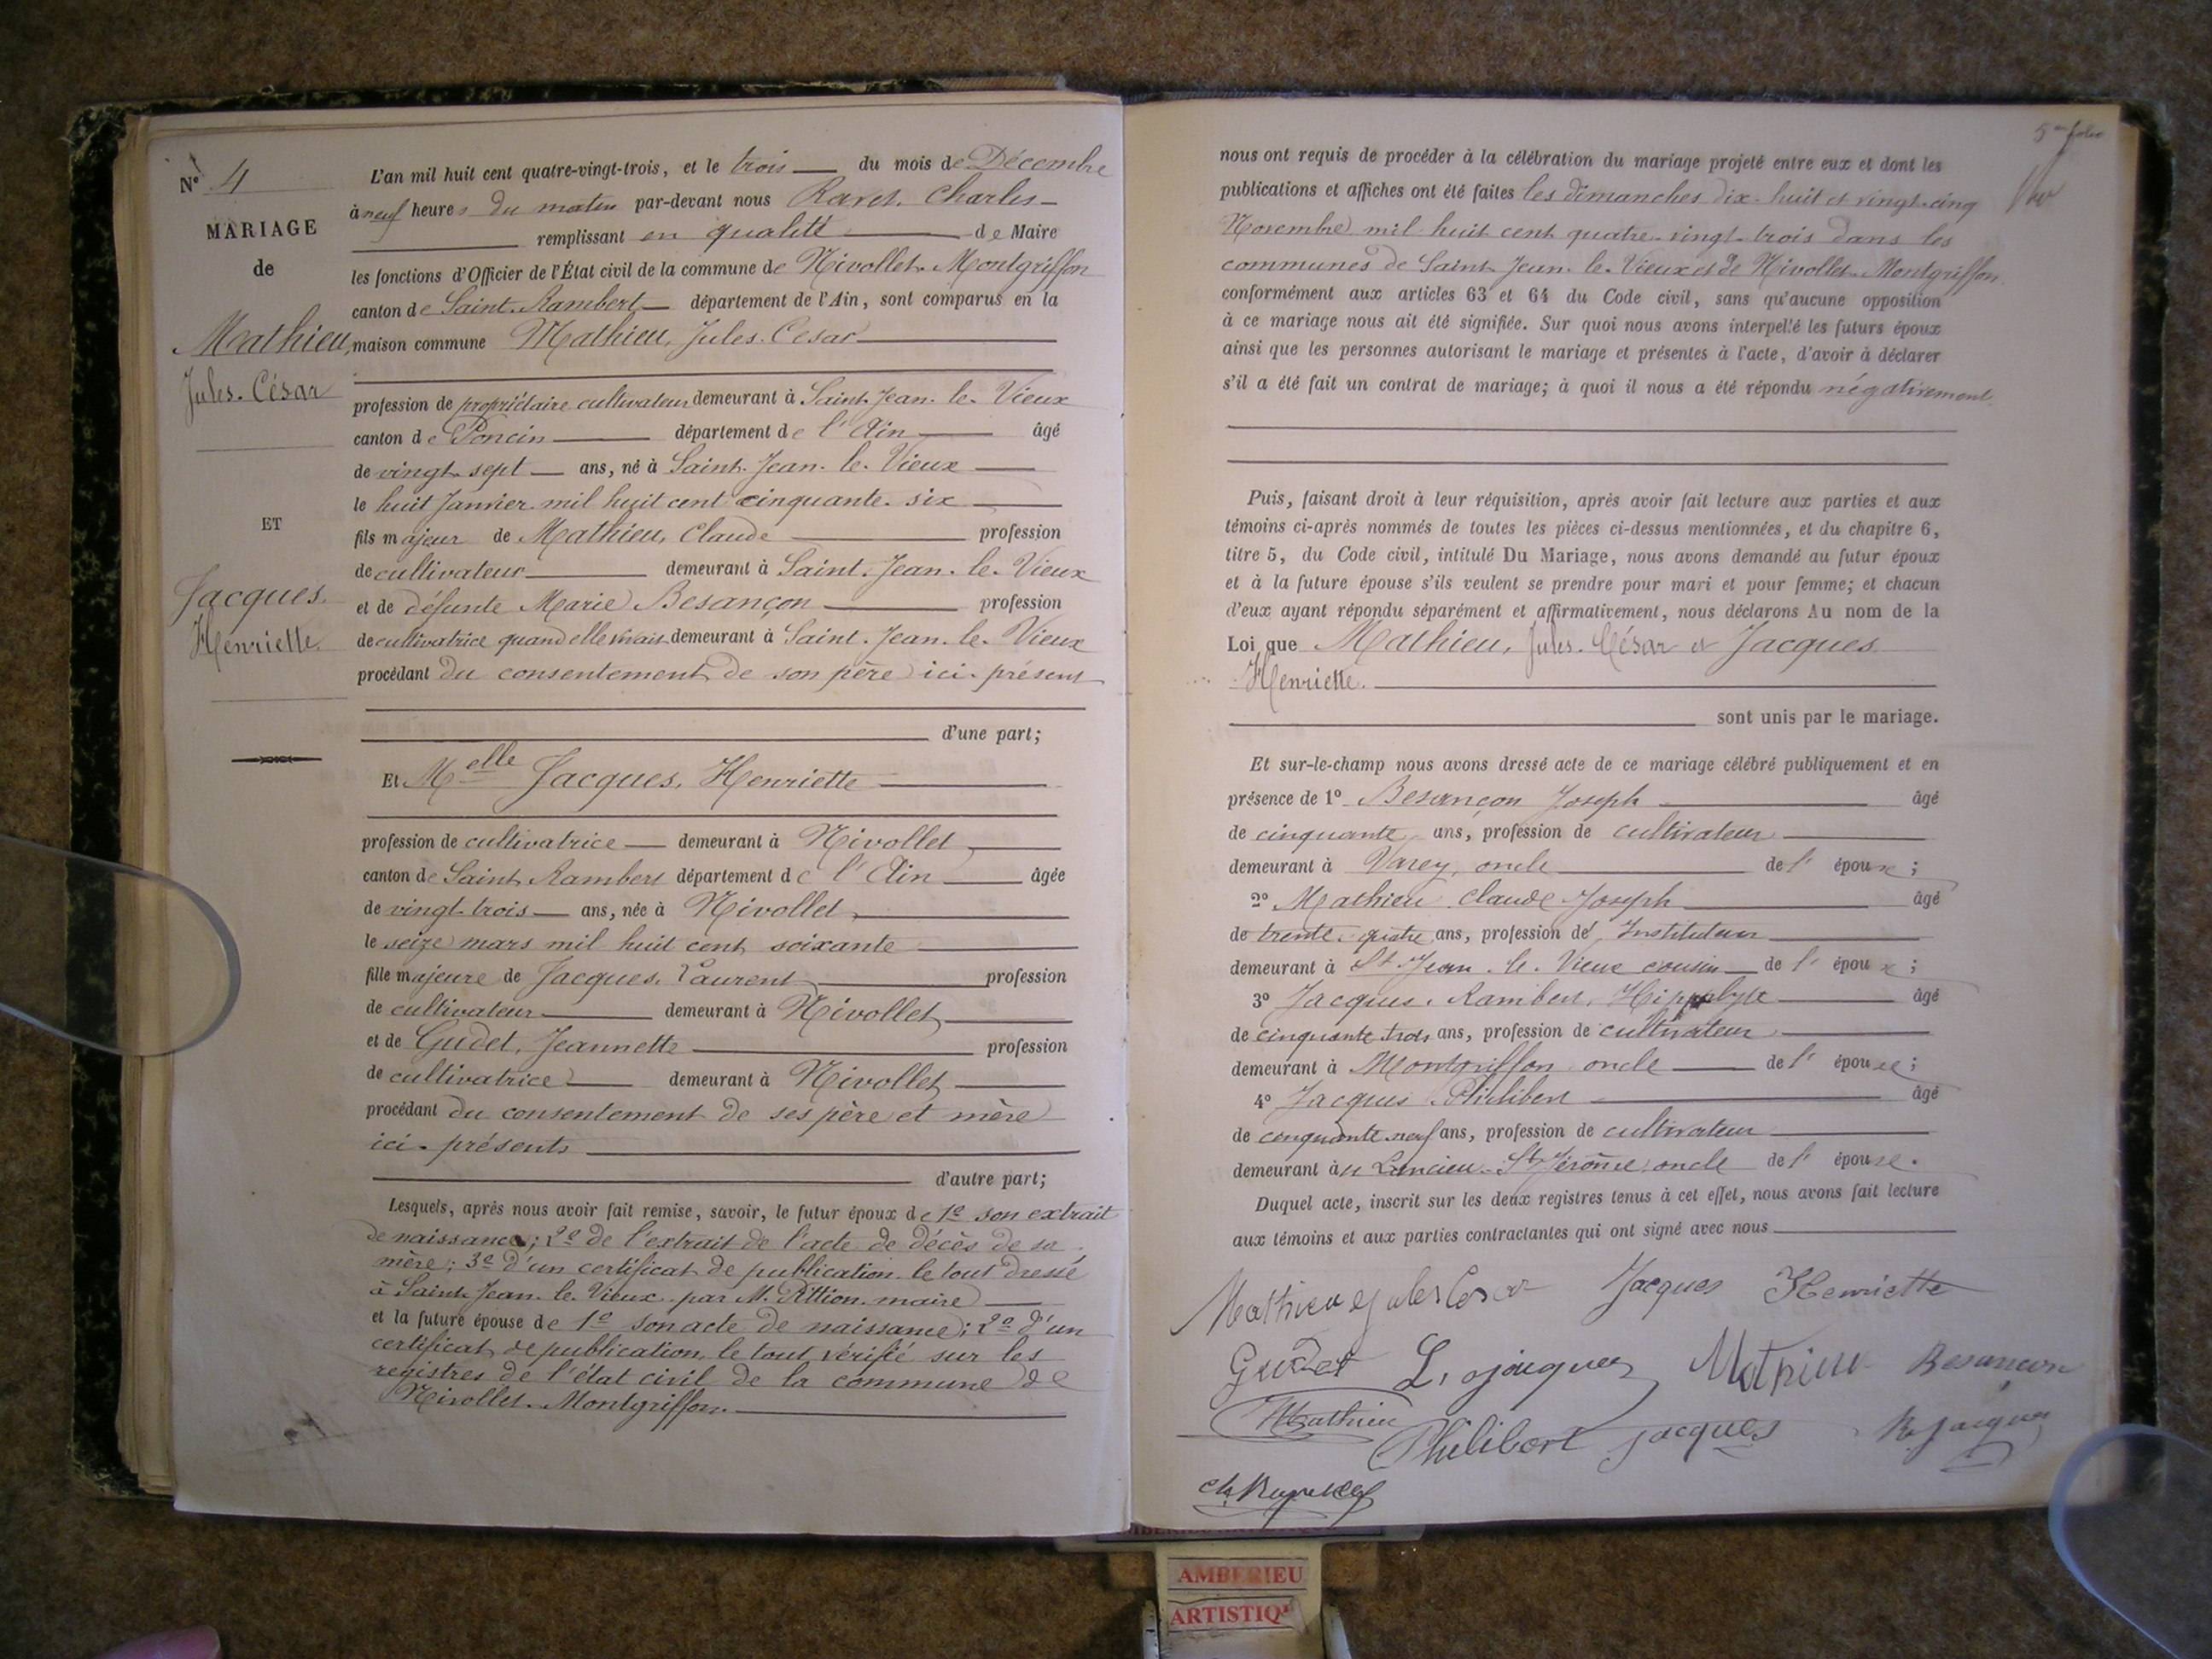 N° 4
MARIAGE
de
Mathieu,
Jules-César
ET
Jacques.
Henriette.
L'an mil huit cent quatre-vingt-trois, et le trois du mois de Décembre
à neuf heures du matin par-devant nous Charles
remplissant en qualité de Maire
les fonctions d'Officier de l'État civil de la commune de Nivollet-Montgriffon
canton de Saint-Rambert département de l'Ain, sont comparus en la
maison commune Mathieu, Jules-Cesar
profession de propriétaire cultivateur demeurant à Saint-Jean-le-Vieux
canton de Poncin département de l'Ain âgé
de vingt-sept ans, né à Saint-Jean-le-Vieux
le huit Janvier mil huit cent cinquante-six
fils majeur de Mathieu, Claude profession
de cultivateur demeurant à Saint-Jean-le-Vieux
et de défunte Marie Besançon profession
de cultivatrice quand elle vivait demeurant à Saint-Jean-le-Vieux
procédant du consentement de son père ici-présent
d'une part;
Et Melle Jacques, Henriette
profession de cultivatrice demeurant à Nivollet
canton de Saint-Rambert département de l'Ain âgée
de vingt-trois ans, née à Nivollet
le seize mars mil huit cent soixante
fille majeure de Jacques, Laurent profession
de cultivateur demeurant à Nivollet
et de Gudet, Jeannette profession
de cultivatrice demeurant à Nivollet
procédant du consentement de ses père et mère
ici-présents
d'autre part;
Lesquels, après nous avoir fait remise, savoir, le futur époux de 1° son extrait
de naissance; 2° de l'extrait de l'acte de décès de sa
mère; 3° d'un certificat de publication le tout dressé
à Saint-Jean-le-Vieux par M. maire
et la future épouse de 1° son acte de naissance; 2° d'un
certificat de publication, le tout vérifié sur les
registres de l'état civil de la commune de
Nivollet-Montgriffon.
5me folio
nous ont requis de procéder à la célébration du mariage projeté entre eux et dont les
publications et affiches ont été faites les dimanches dix-huit et vingt-cinq
Novembre mil huit cent quatre-vingt-trois dans les
communes de Saint-Jean-le-Vieux et de Nivollet-Montgriffon
conformément aux articles 63 et 64 du Code civil, sans qu'aucune opposition
à ce mariage nous ait été signifiée. Sur quoi nous avons interpellé les futurs époux
ainsi que les personnes autorisant le mariage et présentes à l'acte, d'avoir à déclarer
s'il a été fait un contrat de mariage; à quoi il nous a été répondu négativement.
Puis, faisant droit à leur réquisition, après avoir fait lecture aux parties et aux
témoins ci-après nommés de toutes les pièces ci-dessus mentionnées, et du chapitre 6,
titre 5, du Code civil, intitulé Du Mariage, nous avons demandé au futur époux
et à la future épouse s'ils veulent se prendre pour mari et pour femme; et chacun
d'eux ayant répondu séparément et affirmativement, nous déclarons Au nom de la
Loi que Mathieu, Jules-César et Jacques
Henriette.
sont unis par le mariage.
Et sur-le-champ nous avons dressé acte de ce mariage célébré publiquement et en
présence de 1° Besançon Joseph âgé
de cinquante ans, profession de cultivateur
demeurant à Varey, oncle de l'époux;
2° Mathieu Claude Joseph âgé
de trente-quatre ans, profession de Instituteur
demeurant à St-Jean-le-Vieux cousin de l'époux;
3° Jacques, Rambert, Hippolyte âgé
de cinquante trois ans, profession de cultivateur
demeurant à Montgriffon oncle de l'épouse;
4° Jacques Philibert âgé
de cinquante-neuf ans, profession de cultivateur
demeurant à St Jérôme oncle de l'épouse.
Duquel acte, inscrit sur les deux registres tenus à cet effet, nous avons fait lecture
aux témoins et aux parties contractantes qui ont signé avec nous
Mathieu Jules Cesar Jacques Henriette
Gudet L. Jacques Mathieu Besançon
Mathieu Philibert Jacques R. Jacques
AMBERIEU
ARTISTIQ